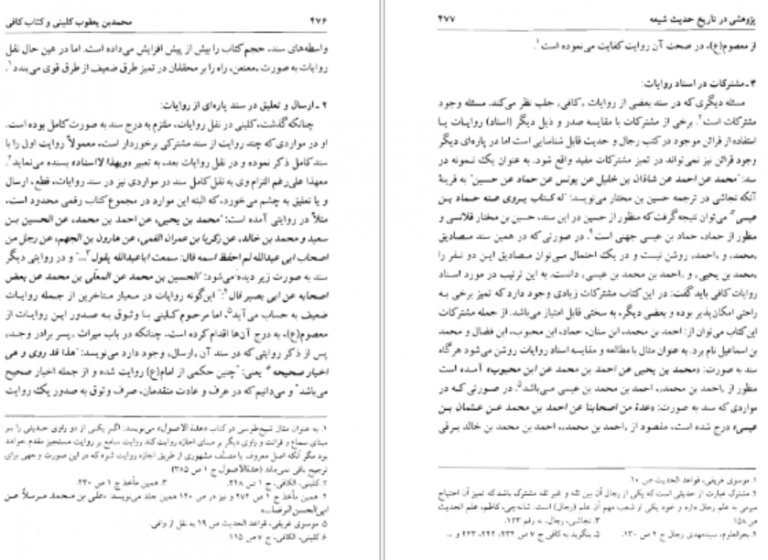 ۴۷۶ محمدبن یعقوب کلینی و کتاب کافی
واسطه‌های سند، حجم کتاب را بیش از پیش افزایش می‌داده است. اما در عین حال نقل
روایات به صورت «معنعن» راه را بر محققان در تمیز طرق ضعیف از طرق قوی می‌بندد.¹
۲ ـ ارسال و تعلیق در سند پاره‌ای از روایات:
چنانکه گذشت، کلینی در نقل روایات، ملتزم به درج سند به صورت کامل بوده است.
او در مواردی که چند روایت از سند مشترکی برخوردار است، معمولاً روایت اول را با
سند کامل ذکر نموده و در نقل روایات بعد، به تعبیر «وبهذا الاسناد» بسنده می‌نماید.²
معهذا علی‌رغم التزام وی به نقل کامل سند در مواردی نیز در سند روایات، قطع، ارسال
و یا تعلیق به چشم می‌خورد، که البته این موارد در مجموع کتاب رقمی محدود است.
مثلاً در روایتی آمده است: "محمد بن یحیی، عن احمد بن محمد، عن الحسین بن
سعید و محمد بن خالد، عن زکریا بن عمران القمی، عن هارون بن الجهم، عن رجل من
اصحاب ابی عبدالله لم احفظ اسمه قال: سمعت اباعبدالله یقول³..." و در روایتی دیگر
سند به صورت زیر دیده می‌شود: "الحسین بن محمد عن المعلّی بن محمد عن بعض
اصحابه عن ابی بصیر قال⁴: "این‌گونه روایات در معیار متاخرین از جمله روایات
ضعیف به حساب می‌آید⁵، اما مرحوم کلینی با وثوق به صدور این روایات از
معصوم(ع)، به درج آن‌ها اقدام کرده است. چنانکه در باب میراث «پسر برادر وجد»،
پس از ذکر روایتی که در سند آن «ارسال» وجود دارد می‌نویسد: "هذا قد روی و هی
اخبار صحیحه⁶ یعنی: "چنین حکمی از امام(ع) روایت شده و از جمله اخبار صحیح
می‌باشد" و می‌دانیم که در عرف و عادت متقدمان، صرف وثوق به صدور یک روایت
۱. به عنوان مثال شیخ‌طوسی در کتاب «عدة الاصول» می‌نویسد: اگر یکی از دو راوی حدیثی را بر
مبنای سماع و قرائت و راوی دیگر بر مبنای اجازه روایت کند روایت سامع بر روایت مستجیز مقدم خواهد
بود مگر آنکه اصل معروف یا مصنّف مشهوری از طریق اجازه روایت شود که در این صورت وجهی برای
ترجیح باقی نمی‌ماند (عدةالاصول ج ۱ ص ۳۸۵)
۲. کلینی، الکافی، ج ۱ ص ۲۴۸. ۳. همین مأخذ ج ۱ ص ۲۳۰.
۴. همین مأخذ ج ۱ ص ۲۷۴ و نیز در ص ۱۴۰ همین جلد می‌نویسد «علی بن محمد مرسلاً عن
ابی‌الحسن الرضا...»
۵. موسوی غریفی، قواعد الحدیث ص ۱۹ به نقل از وافی.
۶. کلینی، الکافی، ج ۷ ص ۱۱۵.
۴۷۷ پژوهشی در تاریخ حدیث شیعه
از معصوم(ع)، در صحت آن روایت کفایت می‌نموده است.¹
۳ ـ مشترکات در اسناد روایات:
مسئله دیگری که در سند بعضی از روایات «کافی» جلب نظر می‌کند، مسئله وجود
مشترکات است.² برخی از مشترکات با مقایسه صدر و ذیل دیگر (اسناد) روایات با
استفاده از قرائن موجود در کتب رجال و حدیث قابل شناسایی است اما در پاره‌ای دیگر
وجود قرائن نیز نمی‌تواند در تمیز مشترکات مفید واقع شود. به عنوان یک نمونه در
سند: "محمد عن احمد عن شاذان بن خلیل عن یونس عن حماد عن حسین" به قرینهٔ
آنکه نجاشی در ترجمه حسین بن مختار می‌نویسد: "له کتاب یروی عنه حماد بن
عیسی³" می‌توان نتیجه گرفت که منظور از حسین در این سند، حسین بن مختار قلانسی و
منظور از حماد، حماد بن عیسی جهنی است.⁴ در صورتی که در همین سند مصادیق
«محمد» و «احمد» روشن نیست و در یک احتمال می‌توان مصادیق این دو نفر را
«محمد بن یحیی» و «احمد بن محمد بن عیسی» دانست. به این ترتیب در مورد اسناد
روایات کافی باید گفت: در این کتاب مشترکات زیادی وجود دارد که تمیز برخی به
راحتی امکان‌پذیر بوده و بعضی دیگر، به سختی قابل امتیاز می‌باشد. از جمله مشترکات
این کتاب می‌توان از: احمد بن محمد، ابن سنان، حماد، ابن محبوب، ابن فضال و محمد
بن اسماعیل نام برد. به عنوان مثال با مطالعه و مقایسه اسناد روایات روشن می‌شود هرگاه
سند به صورت: «محمد بن یحیی عن احمد بن محمد عن ابن محبوب» آمده است
منظور از «احمد بن محمد»، احمد بن محمد بن عیسی می‌باشد.⁵ در صورتی که در
مواردی که سند به صورت: «عدة من اصحابنا عن احمد بن محمد عن عثمان بن
عیسی» درج شده است، مقصود از «احمد بن محمد»، احمد بن محمد بن خالد برقی
۱. موسوی غریفی، قواعد الحدیث ص ۱۰
۲. مشترک عبارت از حدیثی است که یکی از رجال آن بین ثقه و غیر ثقه مشترک باشد که تمیز آن احتیاج
مبرمی به علم رجال دارد و خود یکی از شعب مهم آن علم (رجال) است. شانه‌چی، کاظم، علم الحدیث
ص ۱۵۸. ۳. نجاشی، رجال، به رقم ۱۲۳.
۴. بحرالعلوم، سیدمهدی رجال ج ۴ ص ۱۳۰. ۵. بنگرید به کافی ج ۷ ص ۲۳۴، ۲۴۲، ۲۶۳ و ...